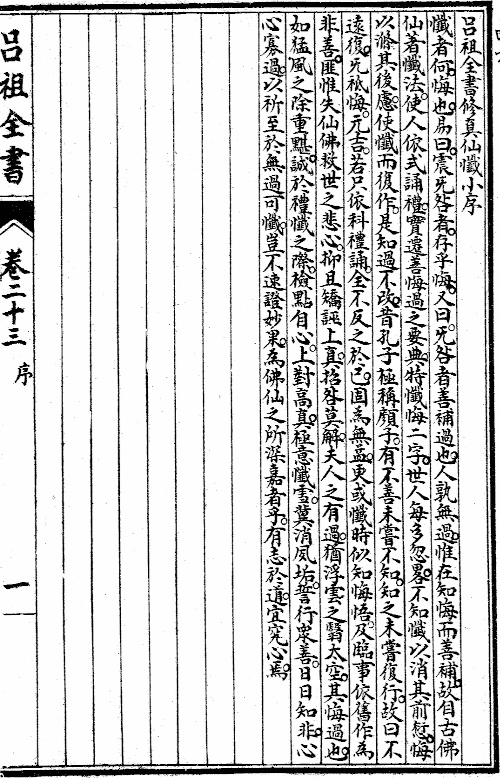 呂祖全書修真仙懺小序
懺者何悔也易曰震旡咎者存乎悔又曰旡咎者善補過也人孰無過惟在知悔而善補故自古佛
仙著懺法使人依式誦禮實遷善悔過之要典特懺悔二字世人每多忽畧不知懺以消其前愆悔
以滌其後慮使懺而復作是知過不改昔孔子極稱顏子有不善未嘗不知知之未嘗復行故曰不
遠復旡祗悔元吉若只依科禮誦全不反之於己固為無益更或懺時似知悔悟及臨事依舊作為
非善匪惟失仙佛救世之悲心抑且矯誣上真招咎莫解夫人之有過猶浮雲之翳太空其悔過也
如猛風之除重靆誠於禮懺之際檢點自心上對高真極意懺雪冀消夙垢誓行眾善日日知非心
心寡過以祈至於無過可懺豈不速證妙果為佛仙之所深嘉者乎有志於道宜究心焉
呂祖全書
卷二十三
序
一